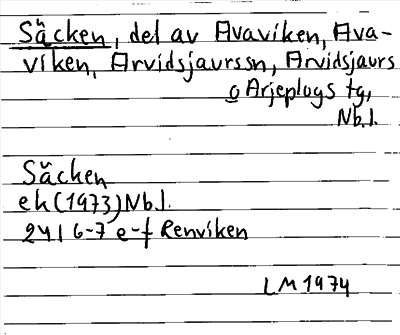 Säcken, del av Avaviken, Ava-
viken, Arvidsjaurssn, Arvidsjaurs
o Arjeplogs tg,
Nb.l.
Säcken
ek (1973) Nb.l.
24I 6-7 e-f Renviken
LM 1974